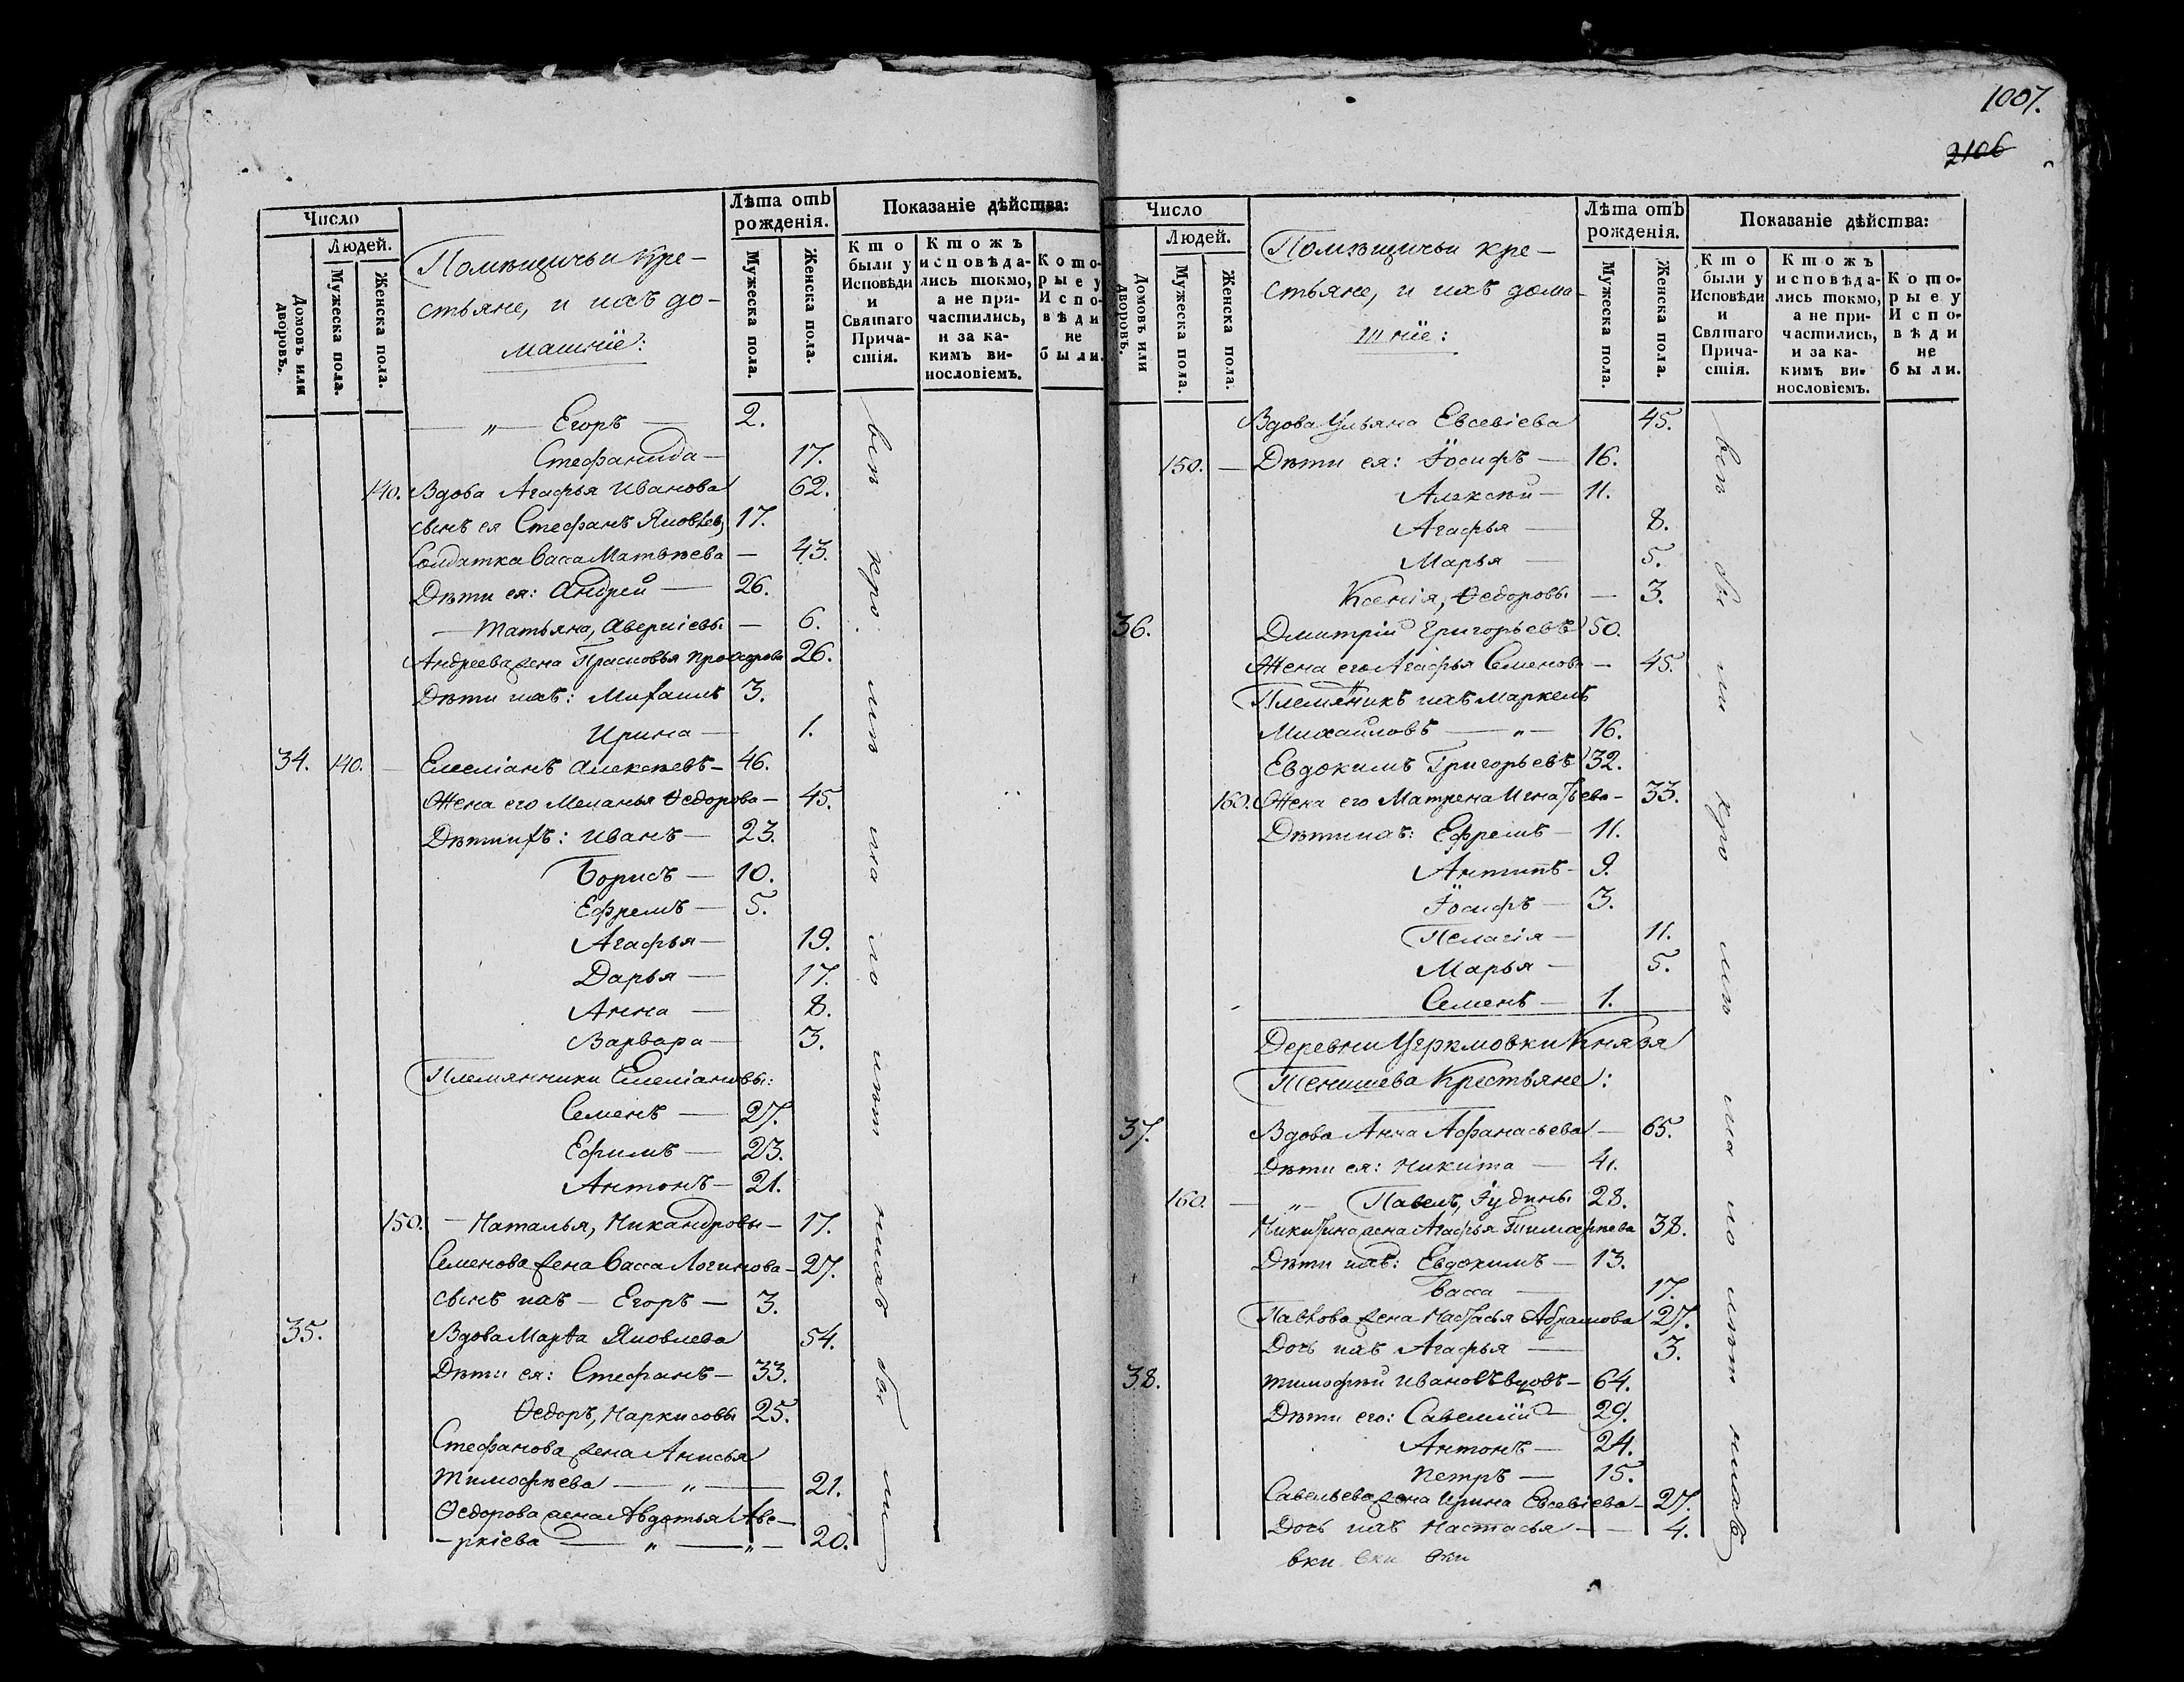 Число
Людей.
Домовъ или дворовъ.
Мужеска пола.
Женска пола.
Помѣщичьи кре-
стьяне, и ихъ до-
машніе:
Лѣта отъ рожденія.
Мужеска пола.
Женска пола.
Показаніе дѣйства:
Кто были у Исповѣди и Святаго Прича- стія.
Ктожъ исповѣда- лись токмо, а не при- частились, и за ка- кимъ ви- нословіемъ.
Кото- рые у Испо- вѣди не были.
— „ — Егоръ — 2.
Стефанида — 17.
140. Вдова Агафья Иванова 62.
сынъ ея Стефанъ Яковлев, 17.
Солдатка Васса Матвѣева — 43.
Дѣти ея: Андрей — 26.
— Татьяна, Аверкіевы — 6.
Андреева жена Прасковья Прохорова 26.
Дѣти ихъ: Михаилъ 3.
Ирина — 1.
34. 140. — Емеліанъ Алексѣевъ — 46.
Жена его Меланья Ѳедорова — 45.
Дѣти ихъ: Иванъ — 23.
Борисъ — 10.
Ефремъ — 5.
Агафья — 19.
Дарья — 17.
Анна — 8.
Варвара — 3.
Племянники Емеліановы:
Семенъ — 27.
Ефимъ — 23.
Антонъ — 21.
150. — Наталья, Никандровы — 17.
Семенова жена Васса Логинова — 27.
сынъ ихъ — Егоръ — 3.
35. Вдова Марѳа Яковлева 54.
Дѣти ея: Стефанъ — 33.
Ѳедоръ, Наркисовы 25.
Стефанова жена Анисья
Тимофѣева — „ — 21.
Ѳедорова жена Авдотья Аве-
-ркіева — „ — „ — 20.
1007.
2106
Число
Людей.
Домовъ или дворовъ.
Мужеска пола.
Женска пола.
Помѣщичьи кре-
стьяне, и ихъ дома-
шніе:
Лѣта отъ рожденія.
Мужеска пола.
Женска пола.
Показаніе дѣйства:
Кто были у Исповѣди и Святаго Прича- стія.
Ктожъ исповѣда- лись токмо, а не при- частились, и за ка- кимъ ви- нословіемъ.
Кото- рые у Испо- вѣди не были.
Вдова Ульяна Евсевіева 45.
150. — Дѣти ея: Іосифъ — 16.
Алексѣй — 11.
Агафья — 8.
Марья — 5.
Ксенія, Ѳедоровы — 3.
36. Дмитрій Григорьевъ 50.
Жена его Агафья Семенова — 45.
Племяникъ ихъ Маркелъ
Михайловъ — „ — 16.
Евдокимъ Григорьевъ 32.
160. Жена его Матрена Игнатьева — 33.
Дѣти ихъ: Ефремъ — 11.
Антипъ — 9.
Іосифъ — 3.
Пелагія — 11.
Марья — 5.
Семенъ — 1.
Деревни Князя
Тенишева Крестьяне:
37. Вдова Анна Афанасьева — 65.
Дѣти ея: Никита — 41.
160. — „ — Павелъ, Іудины 28.
Никитина жена Агафья Тимофѣева 38.
Дѣти ихъ: Евдокимъ — 13.
Васса — 17.
Павлова жена Настасья Абрамова 27.
Дочь ихъ Агафья — 3.
38. Тимофѣй Ивановъ вдовъ — 64.
Дѣти его: Савелій — 29.
Антонъ — 24.
Петръ — 15.
Савельева жена Ирина Евсевіева — 27.
Дочь ихъ Настасья — — 4.
вки вки